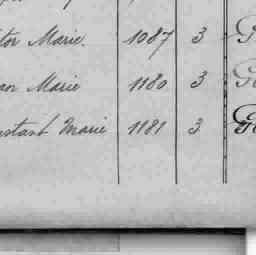 tor Marie. 1087 3 G
an Marie 1180 3 G
nstant Marie 1181 3 G